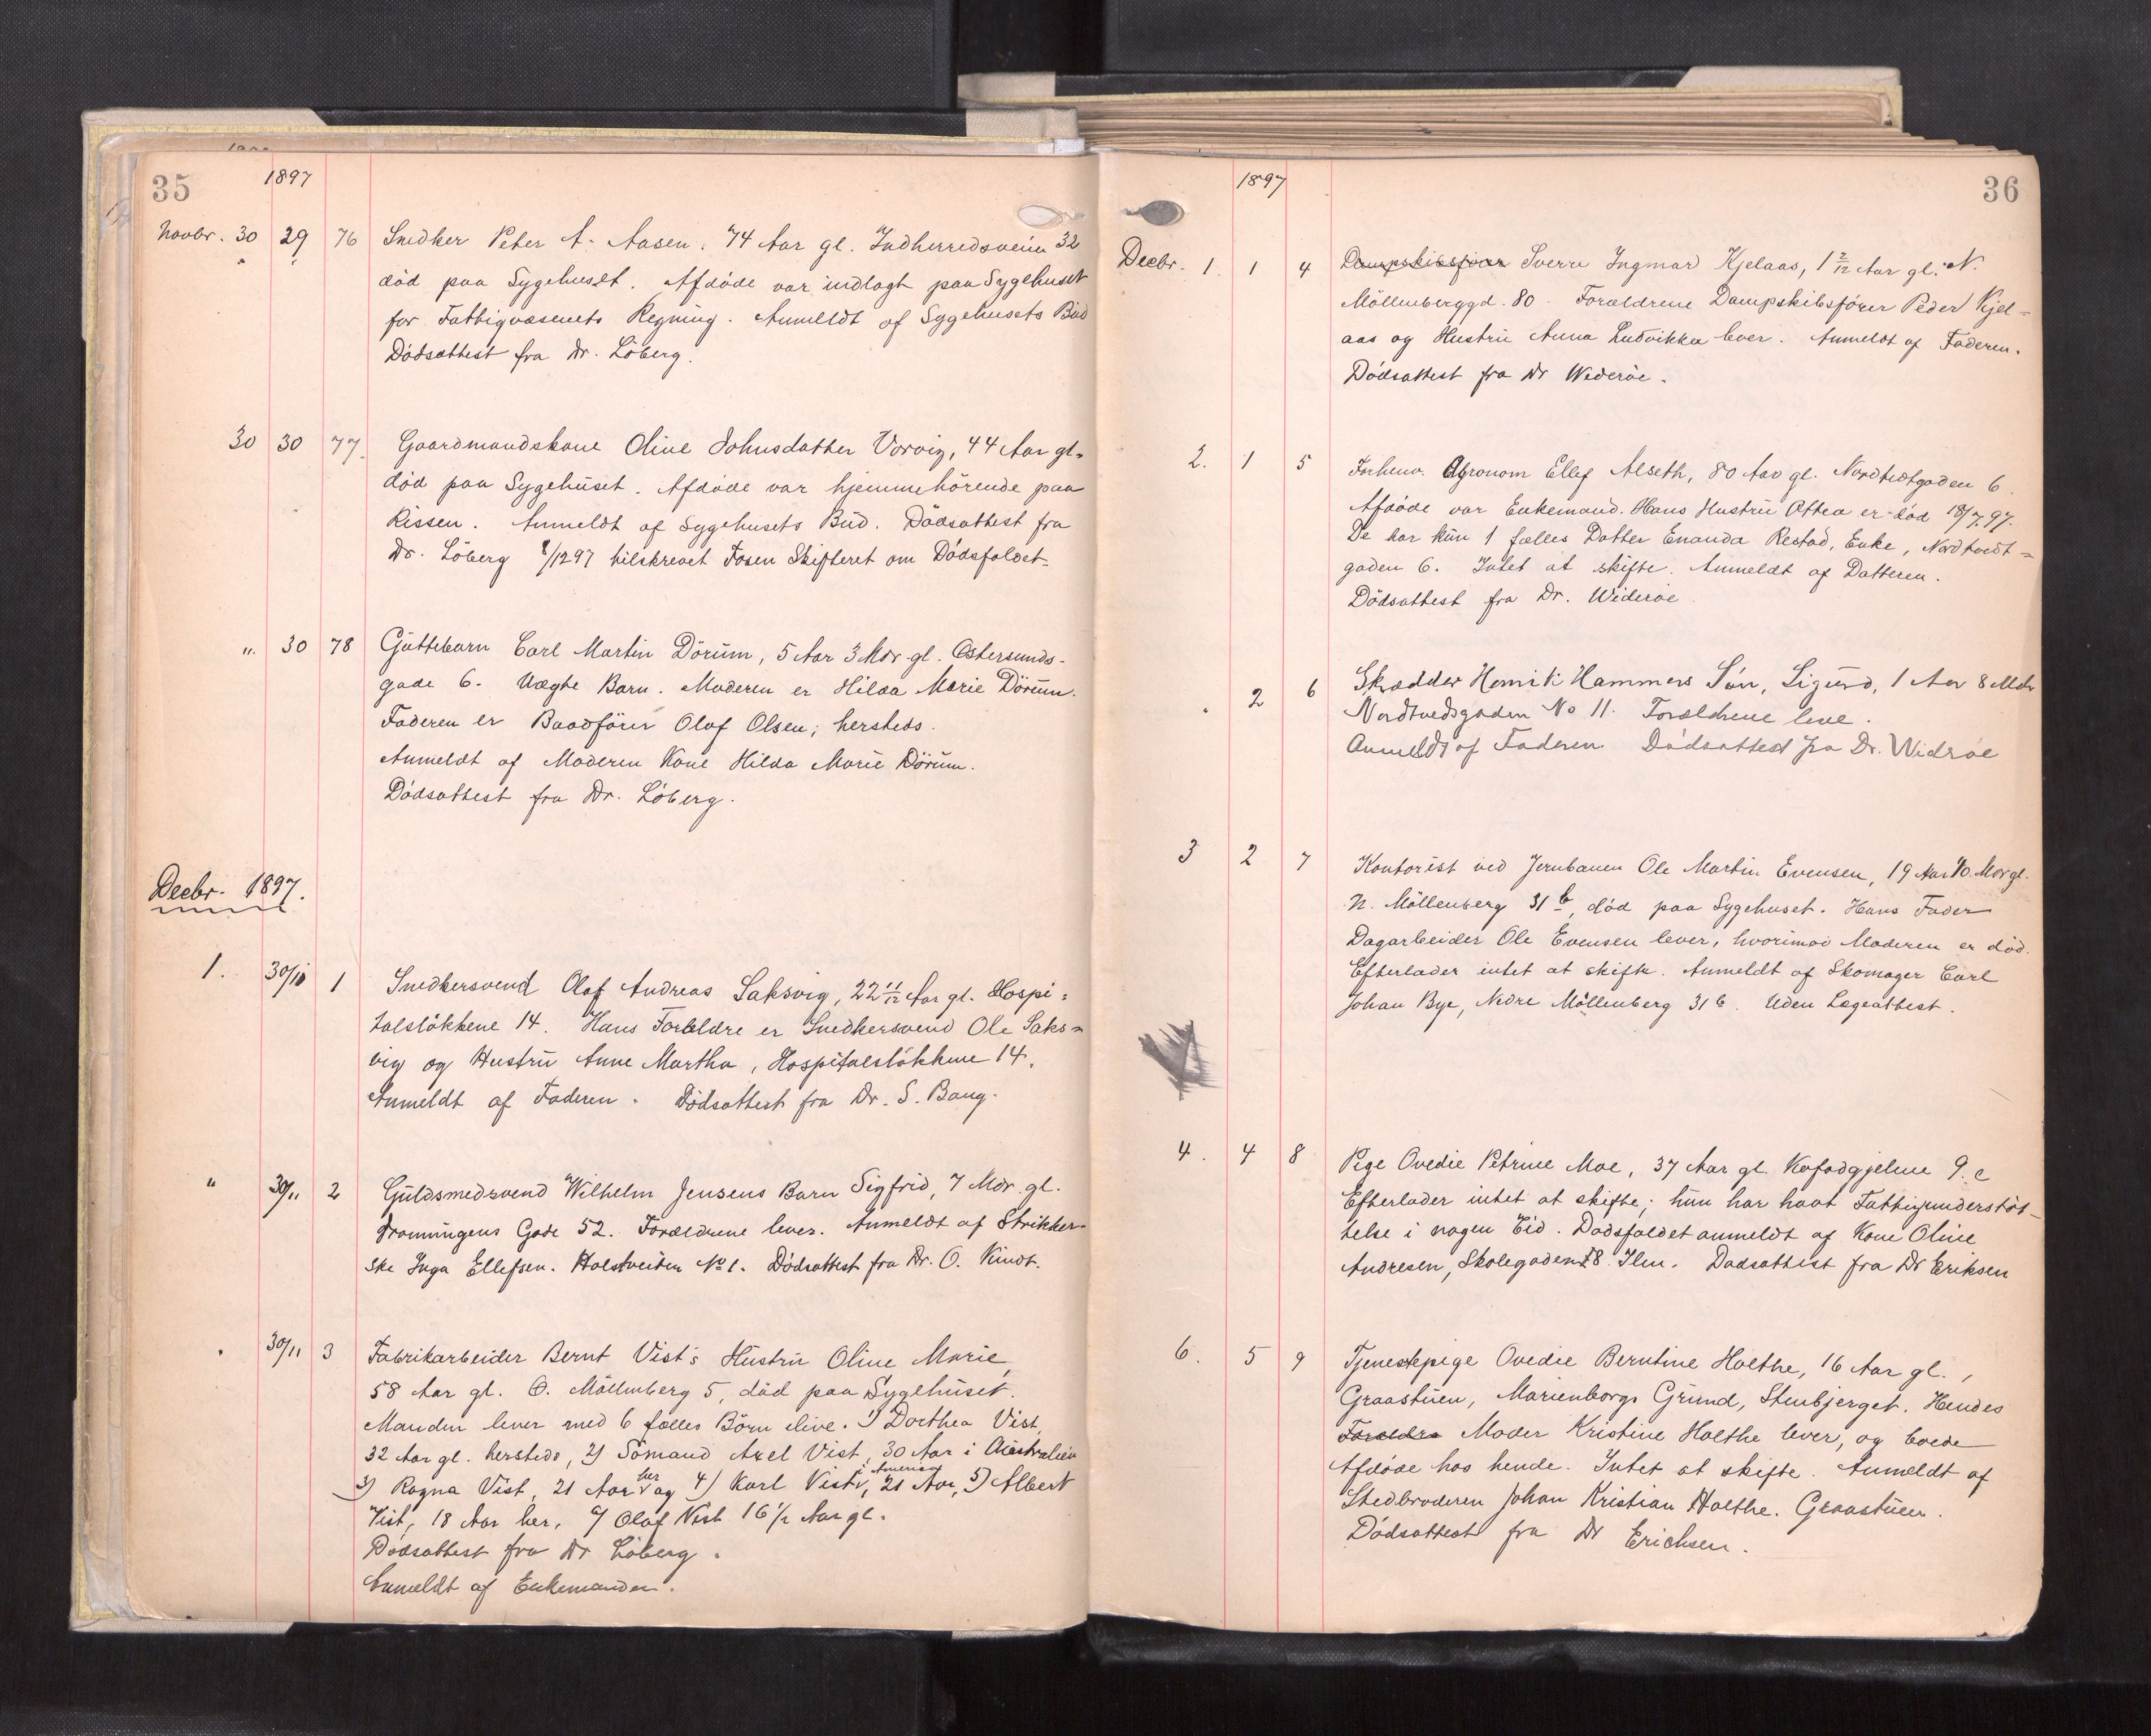 35
1897
Novbr. 30 29 76 Snedker Peter A. Aasen. 74 Aar gl. Indherredsveien 32
død paa Sygehuset. Afdøde var indlagt paa Sygehuset
for Fattigvæsenets Regning. Anmeldt af Sygehusets Bud
Dödsattest fra Dr. Löberg.
30 30 77. Gaardmandskone Oline Johnsdatter Vorvig, 44 Aar gl.
död paa Sygehuset. Afdöde var hjemmehörende paa
Rissen. Anmeldt af Sygehusets Bud. Dödsattest fra
Dr. Löberg 8/12 97 tilskrevet Fosen Skifteret om Dödsfaldet.
". 30 78 Guttebarn Carl Martin Dörum, 5 Aar 3 Mdr. gl. Østersunds-
gade 6. Uægte Barn. Moderen er Hilda Marie Dörum.
Faderen er Baadförer Olaf Olsen, hersteds.
Anmeldt af Moderen Kone Hilda Marie Dörum.
Dödsattest fra Dr. Löberg.
Decbr. 1897.
1. 30/11 1 Snedkersvend Olaf Andreas Saksvig, 22 11/12 Aar gl. Hospi-
talslökkene 14. Hans Forældre er Snedkersvend Ole Saks-
vig og Hustru Anne Martha, Hospitalslökkene 14.
Anmeldt af Faderen. Dödsattest fra Dr. S. Bang.
" 30/11 2 Guldsmedsvend Wilhelm Jensens Barn Sigfrid, 7 Mdr. gl.
Dronningens Gade 52. Forældrene lever. Anmeldt af Strikker-
ske Inga Ellefsen. No 1. Dödsattest fra Dr. O. Kindt.
" 30/11 3 Fabrikarbeider Bernt Vist's Hustru Oline Marie,
58 Aar gl. Ø. Möllenberg 5, död paa Sygehuset.
Manden lever med 6 fælles Börn ilive. 1) Dorthea Vist,
32 Aar gl. hersteds, 2) Sömand Axel Vist, 30 Aar i Australien
3) Ragna Vist, 21 Aar her og 4) Karl Vist i Amerika, 21 Aar, 5) Albert
Vist, 18 Aar her, 6) Olaf Vist 16 1/2 Aar gl.
Dödsattest fra Dr Löberg.
Anmeldt af Enkemanden.
36
1897
Decbr. 1. 1 4 Dampskibsförer Sverre Ingmar Kjelaas, 1 2/12 Aar gl. N.
Möllenberggd. 80. Forældrene Dampskibsförer Peder Kjel-
aas og Hustru Anna Ludvikka lever. Anmeldt af Faderen.
Dödsattest fra Dr Wideröe.
2. 1 5 Forhenv. Agronom Ellef Alseth, 80 Aar gl. Nordtvedtgaden 6.
Afdöde var Enkemand. Hans Hustru Attea er död 18/7.97.
De har kun 1 fælles Datter Enanda Restad, Enke, Nordtvedt-
gaden 6. Intet at skifte. Anmeldt af Datteren.
Dödsattest fra Dr. Wideröe
" 2 6 Skrædder Henrik Hammers Søn, Sigurd, 1 Aar 8 Mdr
Nordtvedsgaden No 11. Forældrene leve.
Anmeldt af Faderen. Dödsattest fra Dr. Widrøe
3 2 7 Kontorist ved Jernbanen Ole Martin Evensen, 19 Aar 10 Mdr gl.
N. Möllenberg 31 b, död paa Sygehuset. Hans Fader
Dagarbeider Ole Evensen lever, hvorimod Moderen er död.
Efterlader intet at skifte. Anmeldt af Skomager Carl
Johan Bye, Nedre Möllenberg 31 b. Uden Lægeattest.
4. 4 8 Pige Ovedie Petrine Moe, 37 Aar gl. Kofodgjelene 9.c
Efterlader intet at skifte; hun har havt Fattigunderstöt-
telse i nogen Tid. Dødsfaldet anmeldt af Kone Oline
Andresen, Skolegaden 18 Ilen. Dødsattest fra Dr Eriksen
6. 5 9 Tjenestepige Ovedie Berntine Holthe, 16 Aar gl.,
Graastuen, Marienborgs Grund, Stenbjerget. Hendes
Forældre Moder Kristine Holthe lever, og boede
Afdöde hos hende. Intet at skifte. Anmeldt af
Stedbroderen Johan Kristian Holthe. Graastuen.
Dödsattest fra Dr Erichsen.